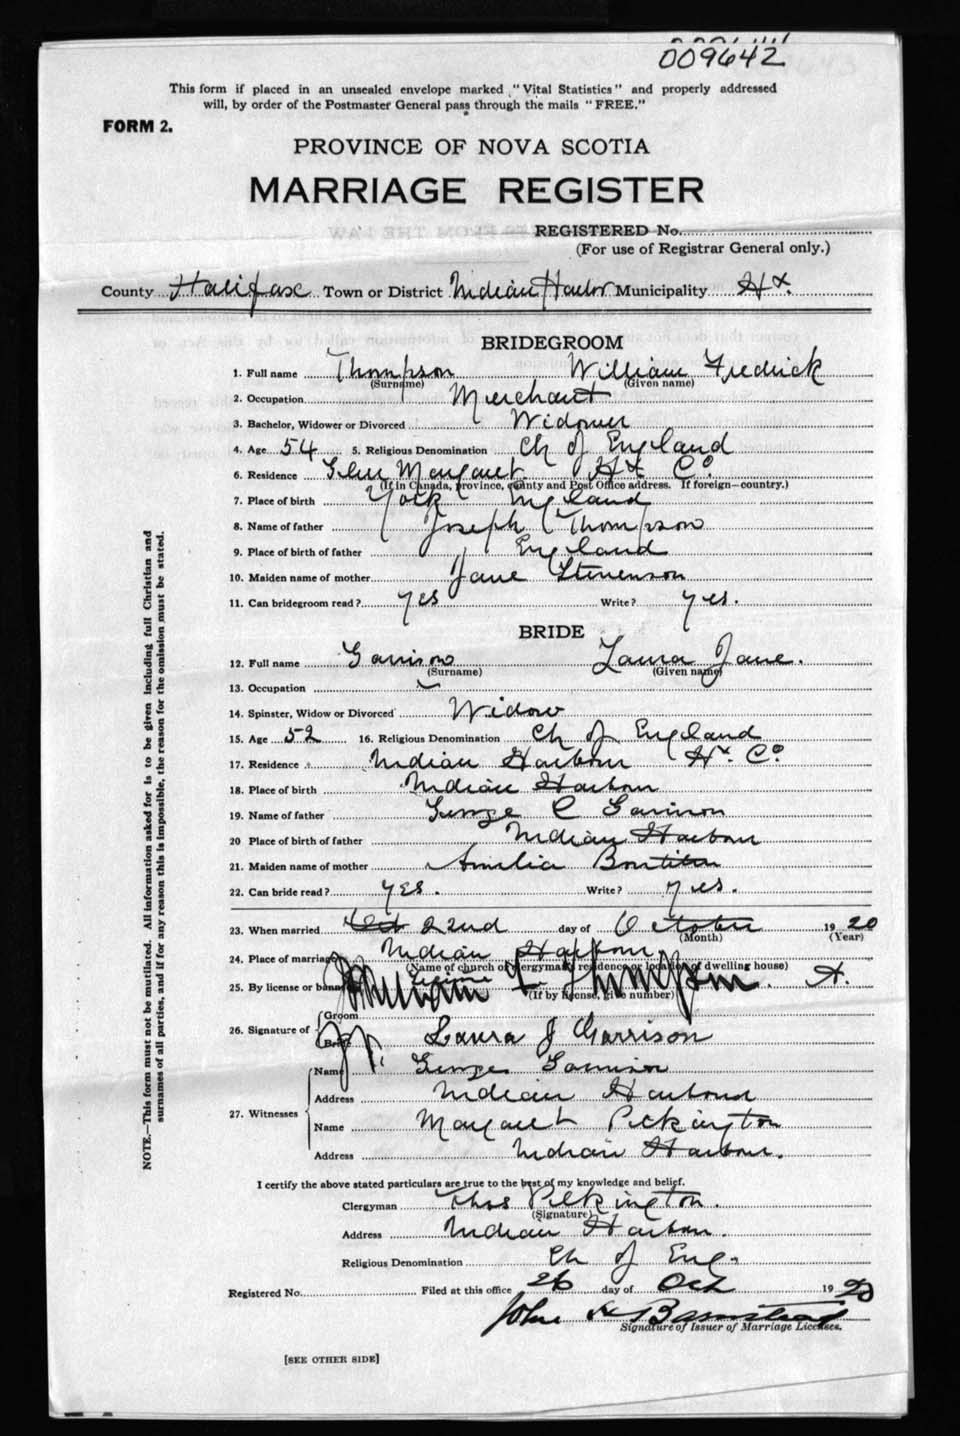 009642
This form if placed in an unsealed envelope marked "Vital Statistics" and properly addressed
will, by order of the Postmaster General pass through the mails "FREE."
FORM 2.
PROVINCE OF NOVA SCOTIA
MARRIAGE REGISTER
REGISTERED No.
(For use of Registrar General only.)
County Halifax Town or District Indian Harbor Municipality Hx.
BRIDEGROOM
1. Full name Thompson William Fredrick
(Surname) (Given name)
2. Occupation Merchant
3. Bachelor, Widower or Divorced Widower
4. Age 54 5. Religious Denomination Ch of England
6. Residence Glen Margaret Hx Co
(If in Canada, province, county and Post Office address. If foreign—country.)
7. Place of birth York England
8. Name of father Joseph Thompson
9. Place of birth of father England
10. Maiden name of mother Jane Stevenson
11. Can bridegroom read? yes Write? yes.
BRIDE
12. Full name Garrison Laura Jane.
(Surname) (Given name)
13. Occupation
14. Spinster, Widow or Divorced Widow
15. Age 52 16. Religious Denomination Ch of England
17. Residence Indian Harbour Hx. Co
18. Place of birth Indian Harbour
19. Name of father George C Garrison
20 Place of birth of father Indian Harbour
21. Maiden name of mother Amelia
22. Can bride read? yes. Write? yes.
23. When married Oct 22nd day of October 1920
(Month) (Year)
24. Place of marriage Indian Harbour
(Name of church or clergyman's residence or location of dwelling house)
25. By license or banns License
(If by license, give number)
William F. Thompson. A.
Groom
26. Signature of
Bride Laura J Garrison
Name George Garrison
Address Indian Harbour
27. Witnesses
Name Margaret Pilkington
Address Indian Harbour.
I certify the above stated particulars are true to the best of my knowledge and belief.
Clergyman Thos Pilkington.
(Signature)
Address Indian Harbour.
Religious Denomination Ch of Eng.
Registered No. Filed at this office 26 day of Oct 1920
John H Barnstead
Signature of Issuer of Marriage Licenses.
[SEE OTHER SIDE]
NOTE.—This form must not be mutilated. All information asked for is to be given including full Christian and
surnames of all parties, and if for any reason this is impossible, the reason for the omission must be stated.